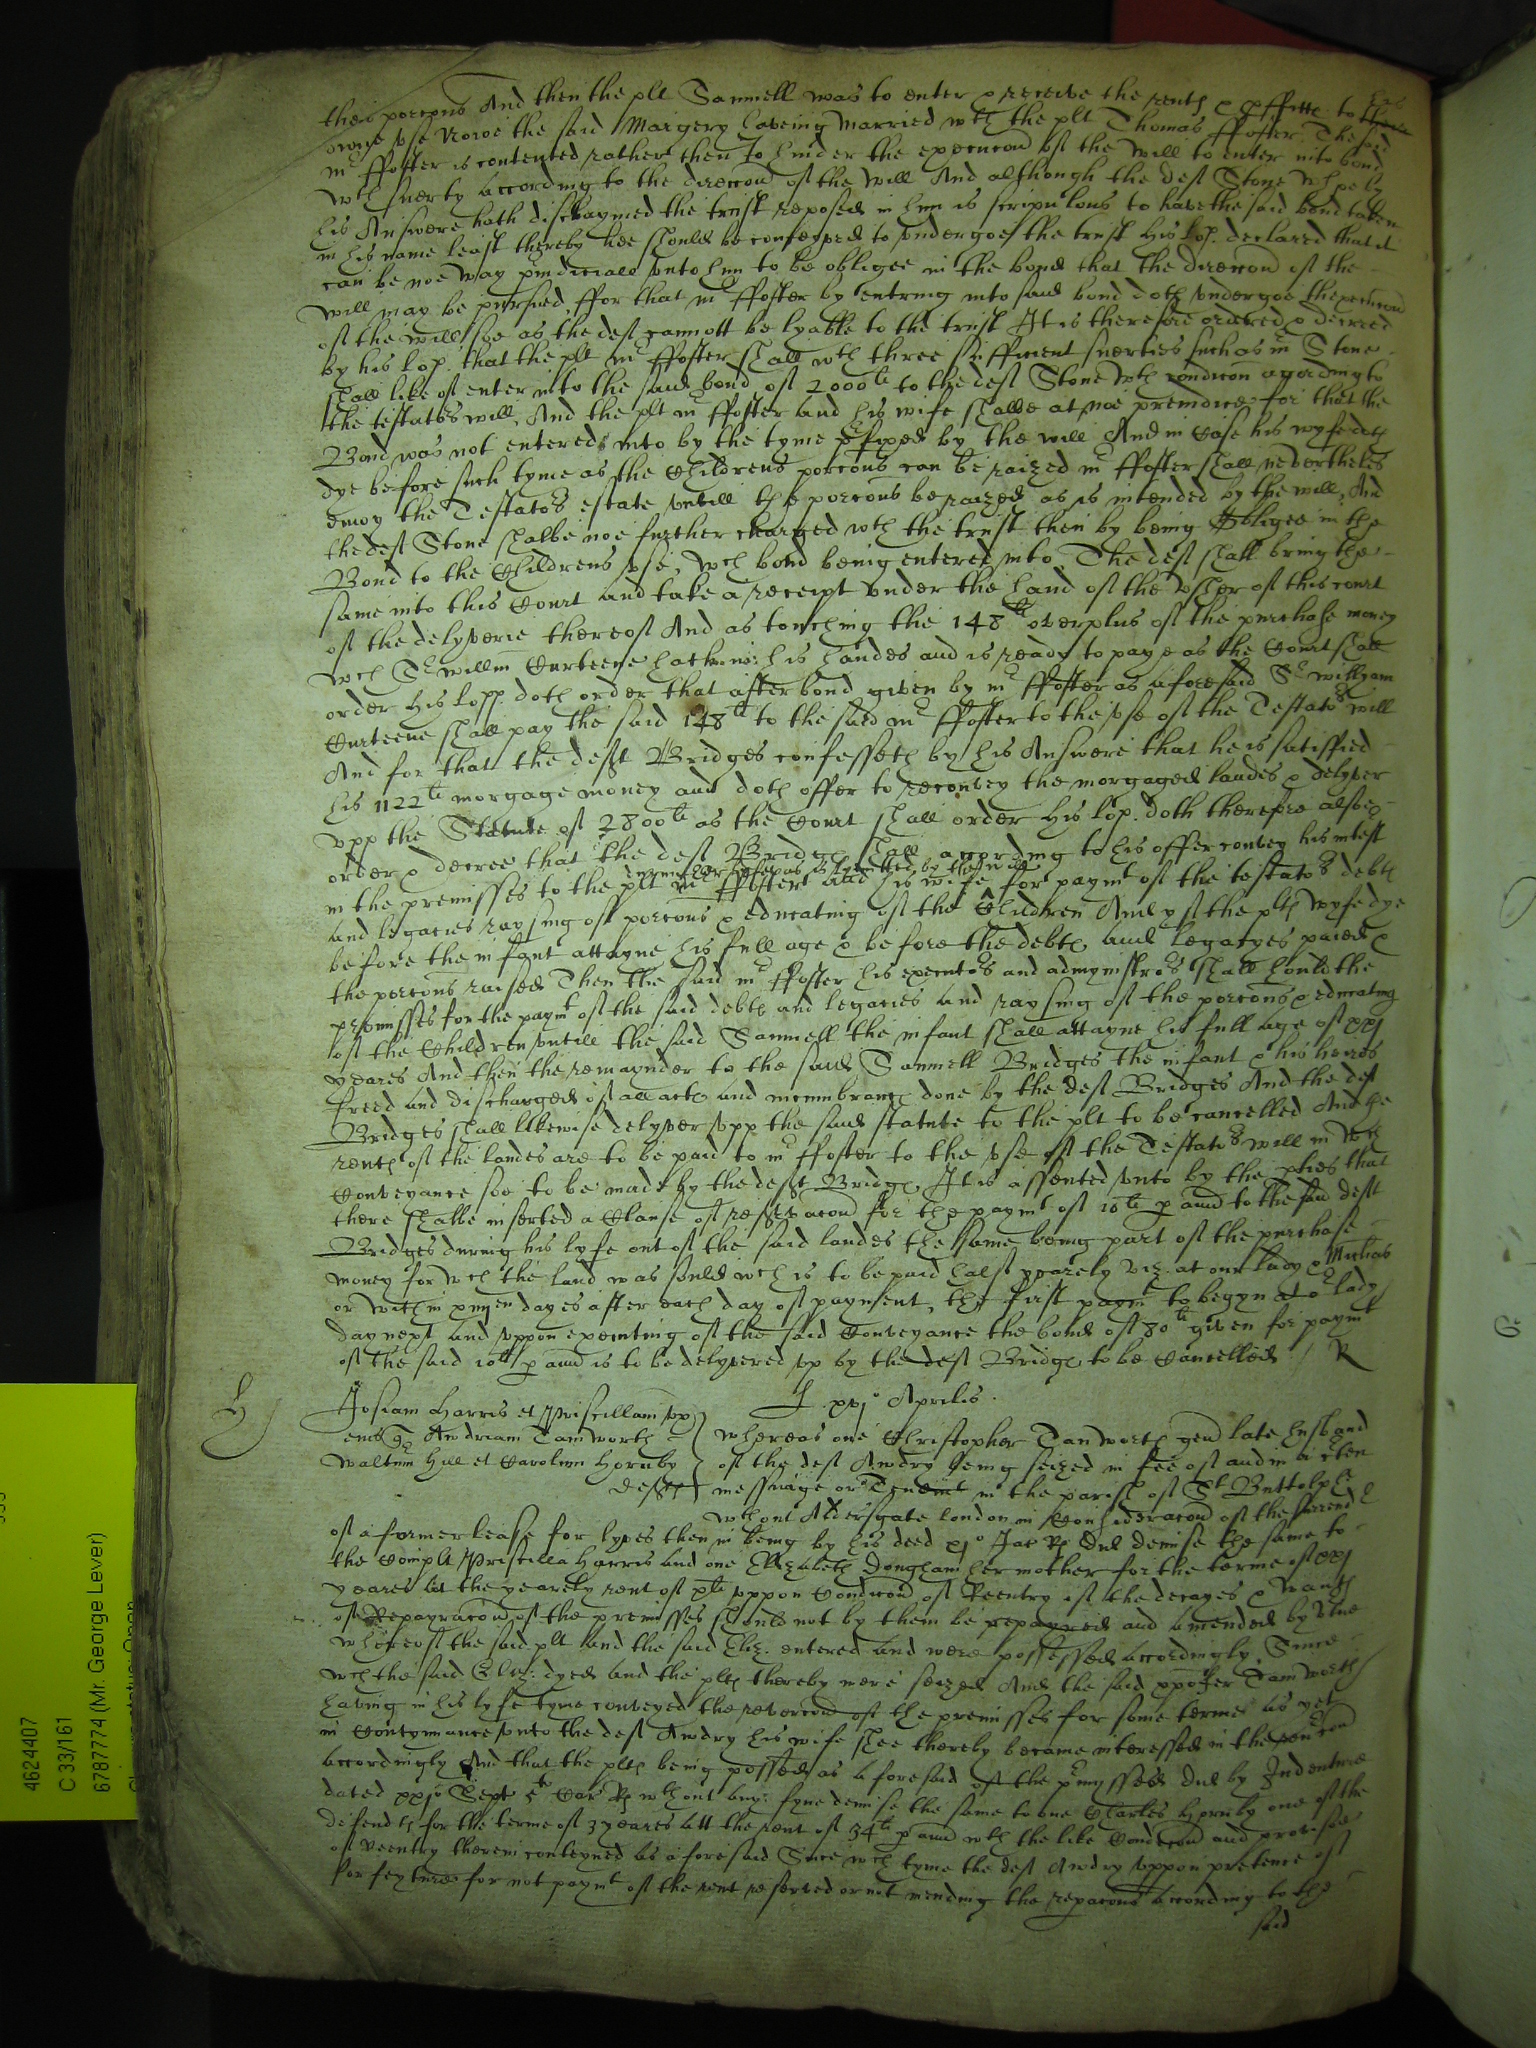 theis porcons And then the plt Samuell was to enter & receive the rentℯ & proffittℯ to his
owne vse Nowe the said Margery haveing Married wth the plt Thomas ffoster The said
mr ffoster is contented rather then to hinder the execucon of the will to enter into bond
wth suerty according to the direccon of the will And although the deft Stone who by
his Answere hath disclaymed the trust reposed in him is scripulous to have the said bond taken
in his name least thereby hee should be conceyved to vndergoe the trust His lop. declared that it
can be noe way preiudiciall vnto him to be obligee in the bond that the direccon of the
will may be pursued, ffor that mr ffoster by entring into said bond doth vndergoe thexecucon
of the will soe as the deft cannott be lyable to the trust It is therefore ordered & decreed
by his lop. that the plt mr ffoster shall wth three sufficient suerties such as mr Stone
shall like of enter into the said bond of 2000li to the deft Stone wth condicon according to
the testators will, And the plt mr ffoster and his wife shalbe at noe preiudice for that the
Bond was not entered into by the tyme prefixed by the will And in Case his wyfe doth
dye before such tyme as the Childrens porcons can be raized mr ffoster shall nevertheles
enioy the Testators estate vntill the porcons be raized as is intended by the will, And
the deft Stone shalbe noe further charged wth the trust then by being Obligee in the
Bond to the Childrens vse, wch bond being entered into, The deft shall bring the
same into this Court and take a receipt vnder the hand of the vsher of this court
of the delyverie thereof And as touching the 148li overplus of the purchase money
wch Sr willm Curteene hath in his handes and is ready to paye as the Court shall
order His lopp. doth order that after bond given by mr ffoster as aforesaid Sr willyam
Curteene shall pay the said 148li to the said mr ffoster to the vse of the Testators will
And for that the deft Bridges confesseth by his Answere that he is satisfied
his 1122li morgage money and doth offer to reconvey the morgaged landes & delyver
vpp the Statute of 2800li as the Court shall order His lop. doth therefore alsoe
order & decree that the deft Bridgℯ shall according to his offer convey his intest
in the premisses to the plt mr ffoster and his wife for paymt of the testators debtℯ
and legacies raysing of porcons & educating of the Children And yf the pltℯ wyfe dye
before the infant attayne his full age & before the debtℯ and legacyes paied &
the porcons raised Then the said mr ffoster his executors and admynistrators shall hould the
premisses for the paymt of the said debtℯ and legacies and raysing of the porcons & educating
of the Children vntill the said Samuell the infant shall attayne his full age of xxj
yeares And then the remaynder to the said Samuell Bridges the infant & his heires
freed and discharged of all actℯ and incumbrancℯ done by the deft Bridges And the deft
Bridges shall likewise delyver vpp the said statute to the plt to be cancelled And the
rentℯ of the landes are to be paid to mr ffoster to the vse of the Testators will in wch
Conveyance soe to be made by the deft Bridgℯ, It is assented vnto by the pties that
there shalbe inserted a Clause of reservacon for the paymt of 10li p ann to the said deft
Bridges during his lyfe out of the said landes the same being part of the purchase
money for wch the land was sould wch is to be paid halfe yearely viz. at our lady & Michas
or within xxjen dayes after each day of payment, the first paymt to begyn at or lady
day next and vppon executing of the said Conveyance the bond of 80li given for paymt
of the said 10li p ann is to be delyvered vp by the deft Bridgℯ to be Cancelled / R
H
J xxjo Aprilis.
Josiam Harris et Priscillam vx
Awdriam Tamworth
Waltrum Hill et Carolum Hornby
defℯ
Whereas one Christopher Tamworth gen late husband
of the deft Awdry being seized in fee of and in a cten
messuage or Tenemt in the parish of St Buttolph
wthout Aldersgate london in Consideracon of the surrendr
of a former lease for lyves then in being by his deed xjo Jac Rℯ did demise the same to
the Complt Priscilla Harris and one Elizabeth Dongham her mother for the terme of xxj
yeares att the yearely rent of xli vppon Condicon of Reentry if the decayes & wantℯ
of Repayracon of the premisses should not by them be repayred and amended by vtue
whereof the said plt and the said Eliz. entered and were possessed accordingly, Since
wch the said Eliz: dyed and the pltℯ thereby were seized And the said xpofer Tamworth
having in his lyfe tyme conveyed the revercon of the premisses for some terme as yet
in Contynuance vnto the deft Awdry his wife shee thereby became interessed in the revrcon
accordingly And that the pltℯ being possed as aforesaid of the premyssed did by Indenture
dated xxjo Septr 5to Car Rℯ wthout any fyne demise the same to one Charles Hornby one of the
defendtℯ for the terme of 3 yeares att the rent of 34li p ann wth the like Condicon and provisoe
of reentry therein conteyned as aforesaid Since wch tyme the deft Awdry vppon pretence of
forfeyture for not paymt of the rent reserved or not mending the repacons according to the
said
4624407
C 33/161
6787774 (Mr. George Lever)